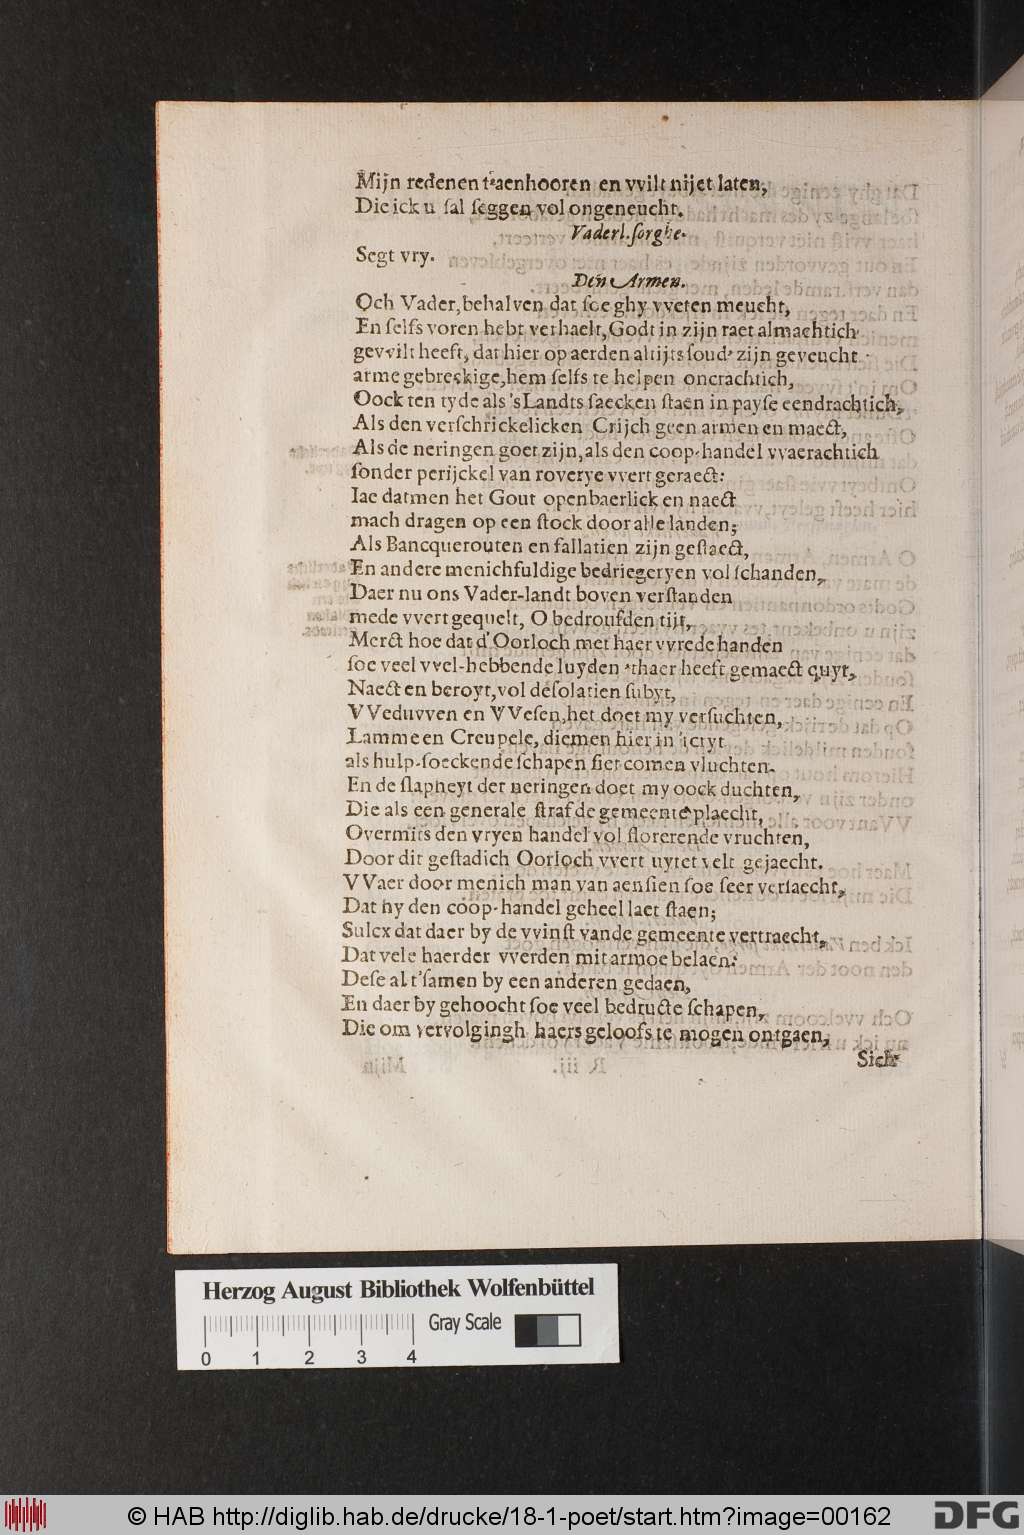 Mijn redenen t'aenhooren en vvilt nijet laten,
Die ick u sal seggen vol ongeneucht.
Vaderl. sorghe.
Segt vry.
Den Armen.
Och Vader, behalven dat soe ghy vveten meucht,
En selfs voren hebt verhaelt, Godt in zijn raet almachtich
gevvilt heeft, dat hier op aerden altijts soud' zijn geveucht
arme gebreckige, hem selfs te helpen oncrachtich,
Oock ten tyde als 's Landts saecken staen in payse eendrachtich,
Als den verschrickelicken Crijch geen armen en maect,
Als de neringen goet zijn, als den coop-handel vvaerachtich
sonder perijckel van roverye vvert geraect:
Iae datmen het Gout openbaerlick en naect
mach dragen op een stock door alle landen;
Als Bancquerouten en fallatien zijn gestaect,
En andere menichfuldige bedriegeryen vol schanden,
Daer nu ons Vader-landt boven verstanden
mede vvert gequelt, O bedroufden tijt,
Merct hoe dat d'Oorloch met haer vvrede handen
soe veel vvel-hebbende luyden 'thaer heeft gemaect quyt,
Naect en beroyt, vol desolatien subyt,
VVeduvven en VVesen, het doet my versuchten,
Lamme en Creupele, diemen hier in 'tcryt
als hulp-soeckende schapen siet comen vluchten.
En de slapheyt der neringen doet my oock duchten,
Die als een generale straf de gemeente plaecht,
Overmits den vryen handel vol florerende vruchten,
Door dit gestadich Oorloch vvert uytet velt gejaecht.
VVaer door menich man van aensien soe seer versaecht,
Dat hy den coop-handel geheel laet staen;
Sulcx dat daer by de vvinst vande gemeente vertraecht,
Dat vele haerder vverden mit armoe belaen:
Dese al t'samen by een anderen gedaen,
En daer by gehoocht soe veel bedructe schapen,
Die om vervolgingh haers geloofs te mogen ontgaen,
Sich
Herzog August Bibliothek Wolfenbüttel
Gray Scale
0 1 2 3 4
© HAB http://diglib.hab.de/drucke/18-1-poet/start.htm?image=00162
DFG